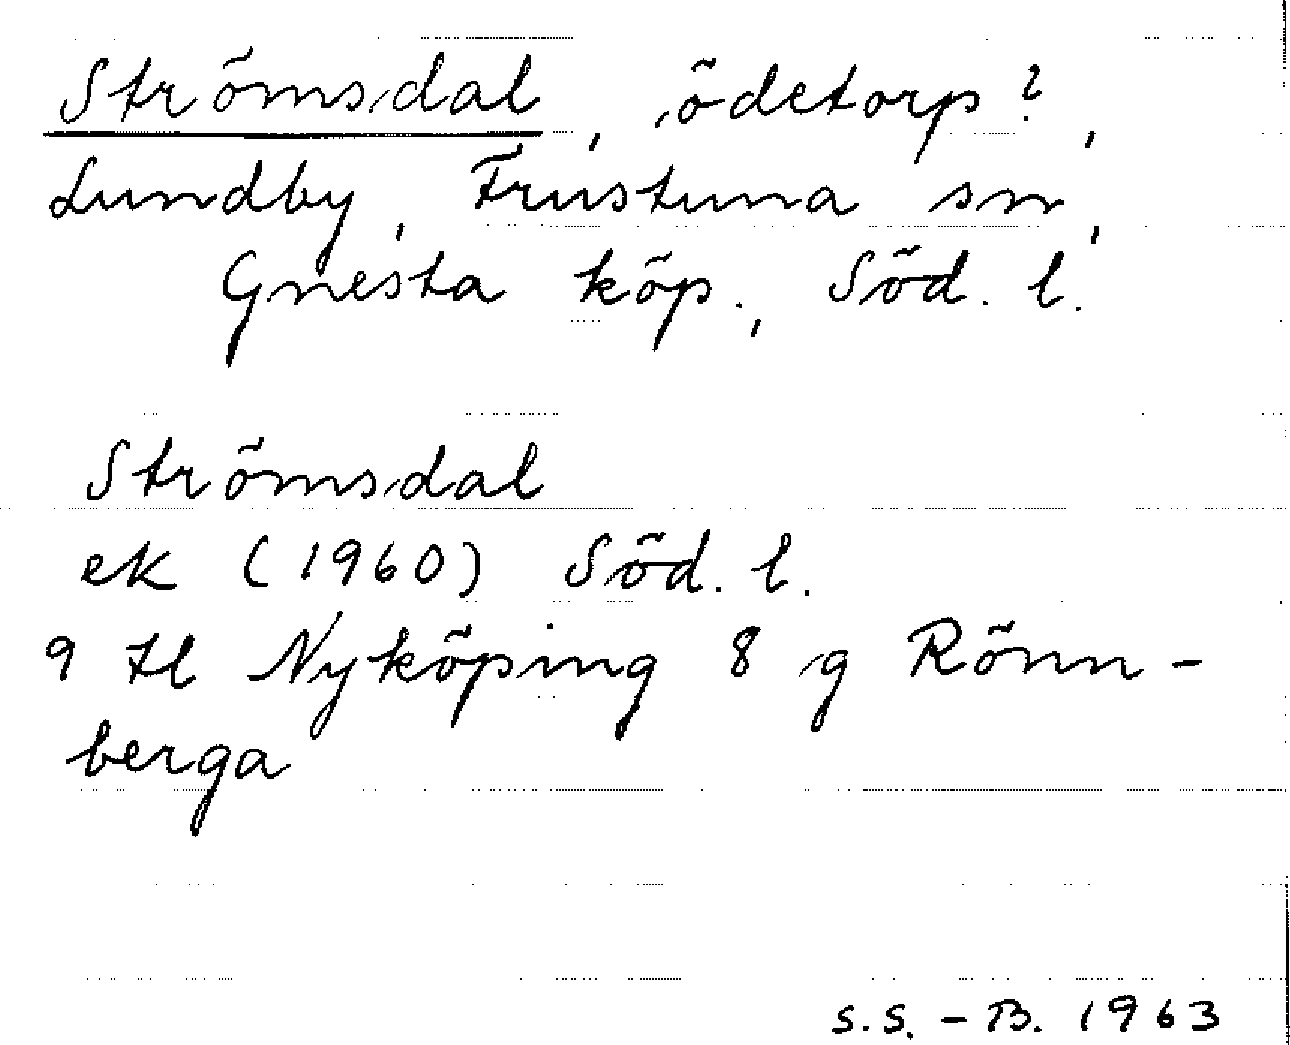 Strömsdal, ödetorp?,
Lundby, Frustuna sn,
Gnesta köp., Söd. l.
Strömsdal
ek (1960) Söd. l.
9 Hl Nyköping 8 g Rönn-
berga
S.S. - B. 1963